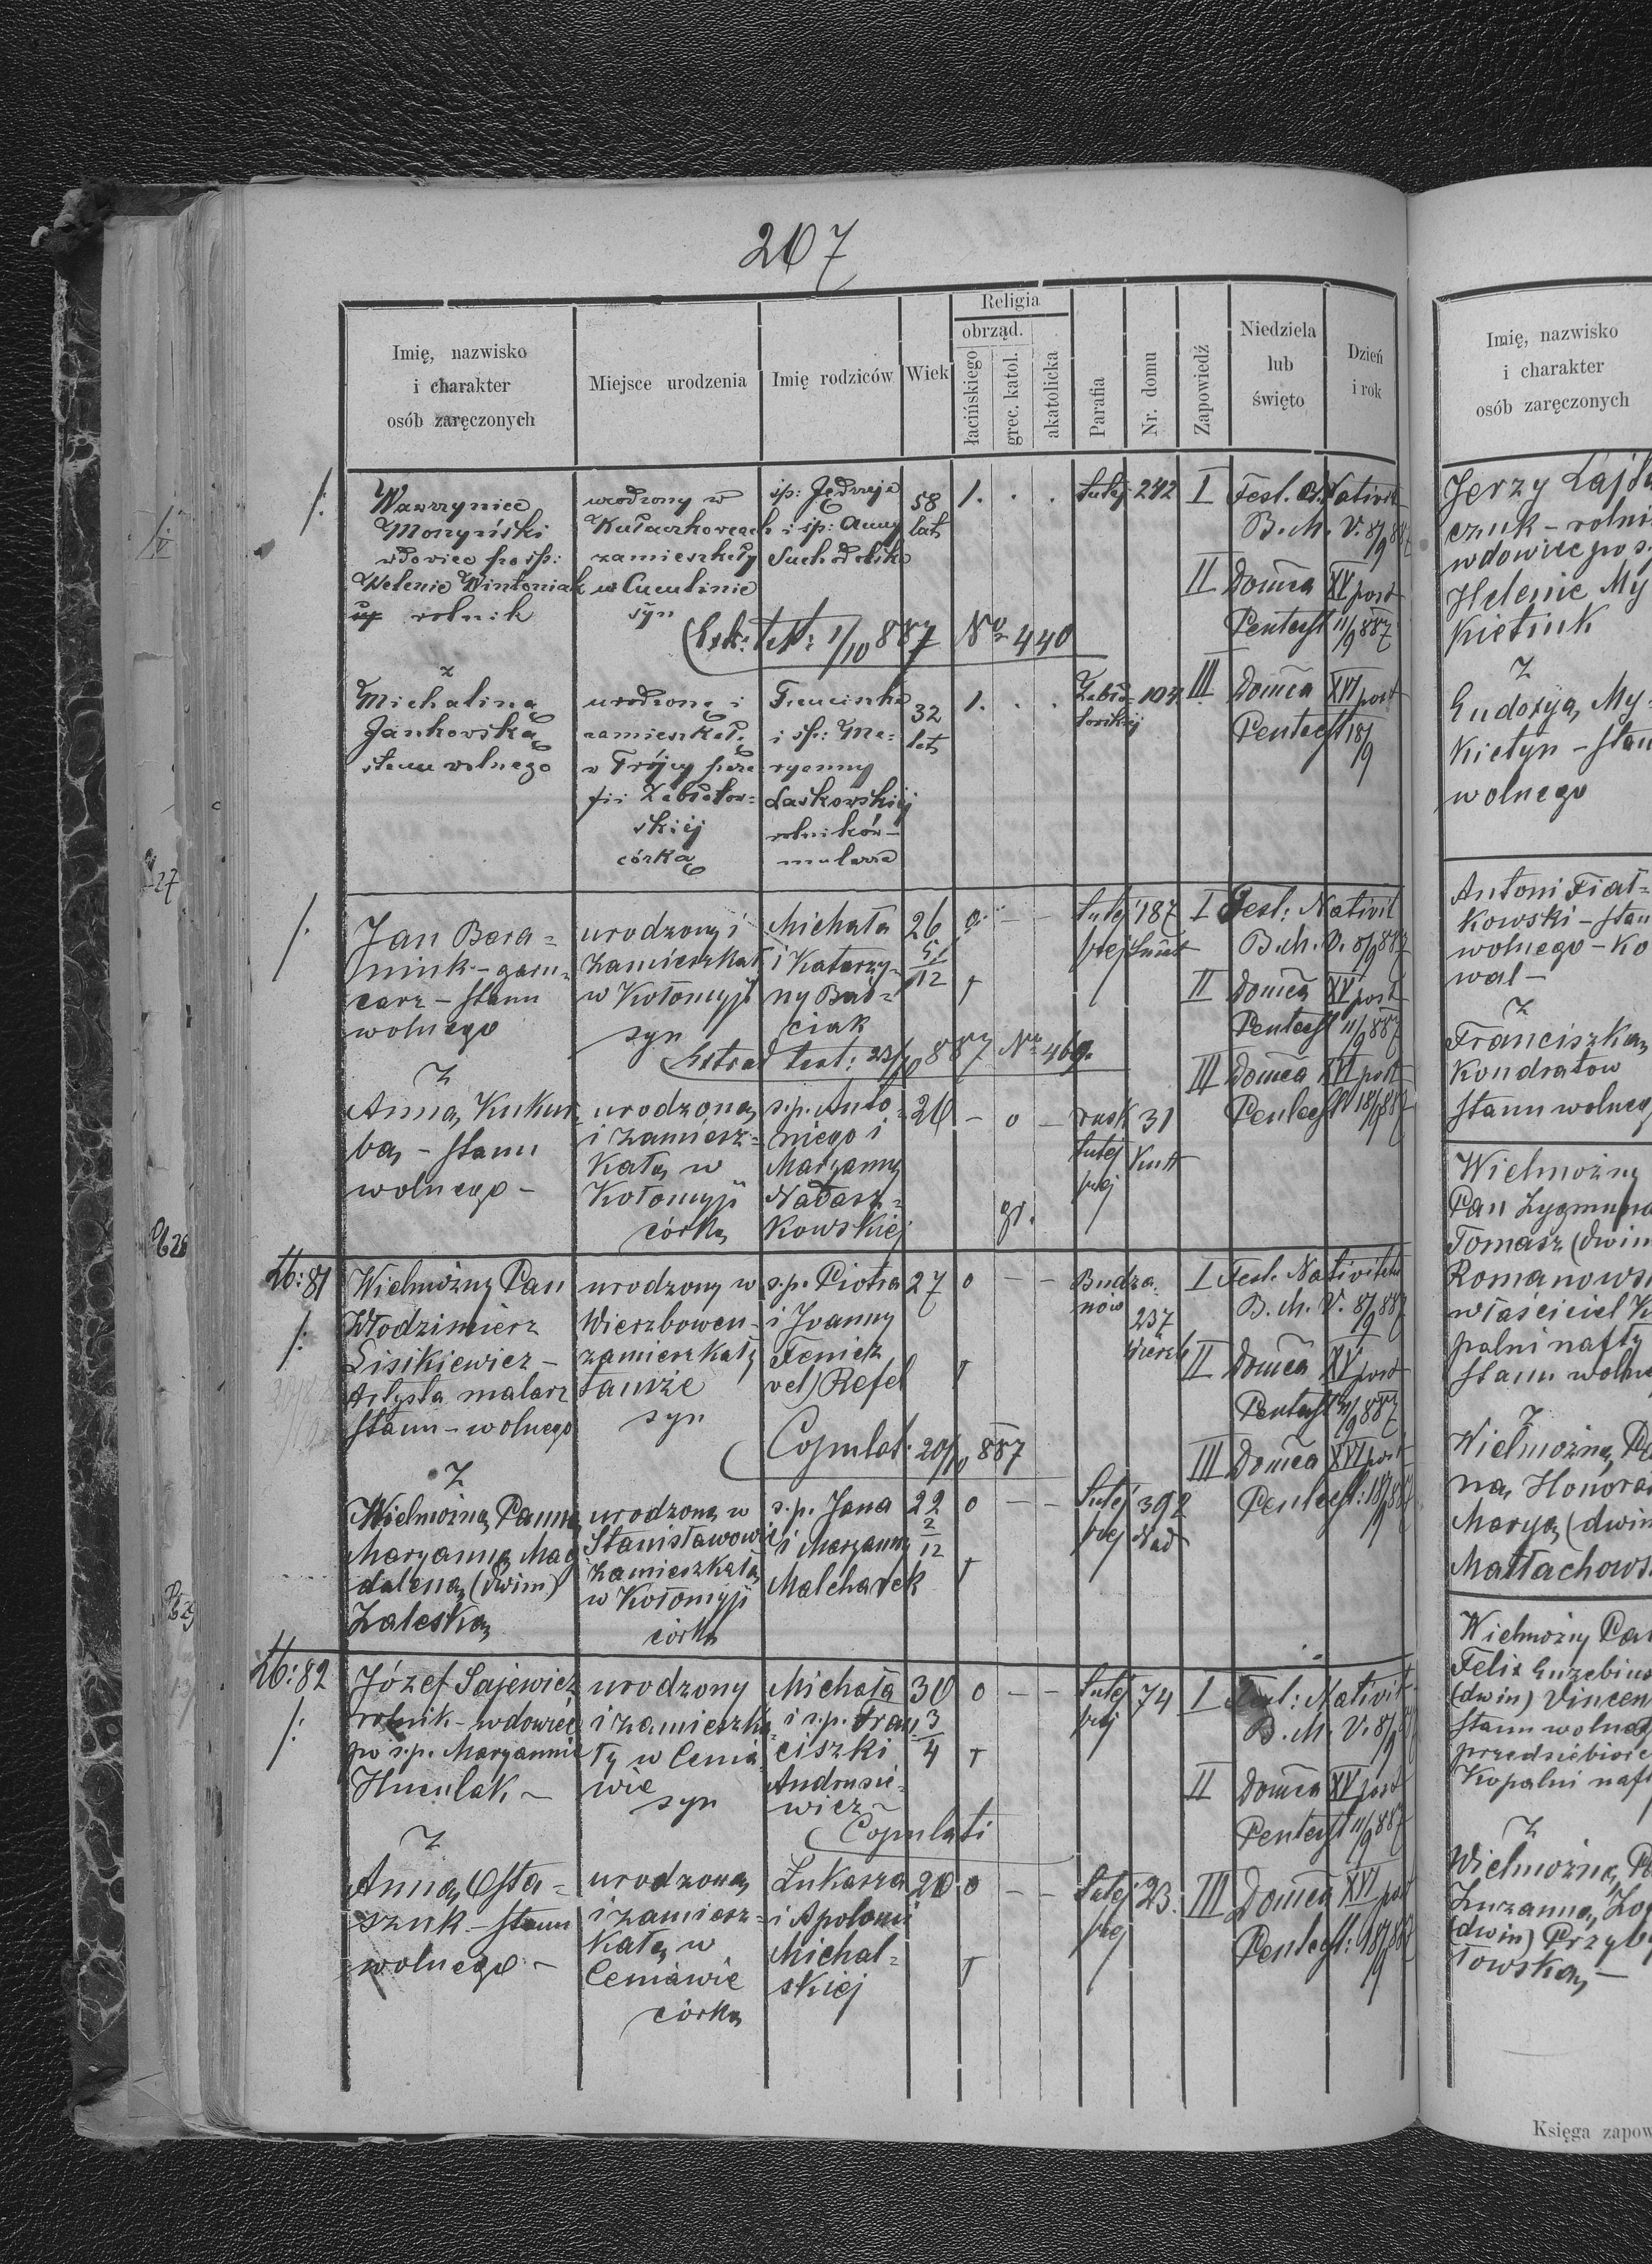 207
Imię, nazwisko
i charakter
osób zaręczonych
Miejsce urodzenia
Imię rodziców
Wiek
Religia
obrząd.
łacińskiego
grec. katol.
akatolicka
Parafia
Nr. domu
Zapowiedź
Niedziela
lub
święto
Dzień
i rok
Wawrzyniec
Monzyński
wdowiec po śp:
Helenie Wintoniak
rolnik
urodzony w
Kułaczkowcach
zamieszkały
w Cuculinie
syn
śp: Jędrzeja
i śp: Anny
Suchodolska
58
lat
1. . .
tutej 242
I Fest. Nativit
B. M. V. 8/9 887
II Domca XV post
Pentecst 11/9 887
Extr: test: 1/10 887 No 440
z
Michaliną
Jankowską
stanu wolnego
urodzoną i
zamieszkałą
w Trójcy para
fii Zabłotow=
skiej
córką
Franciszka
i śp: Ma=
ryanny
Laskowskiej
rolników
mularza
32
lat
1. . .
Zabło=
towskiej
III Domca XVI post
Pentecst 18/9
Jan Bara=
niuk - garn=
carz - stanu
wolnego
urodzony i
zamieszkał
w Kołomyji
syn
Michała
i Katarzy=
ny Bab=
ciak
26
5/12
tutej 187
szej
I Fest: Nativit
B. M. V. 8/9 887
II Domca XV post
Pentecst 11/9 887
Extrad test: 23/10 887 No 469.
Z
Anną Kukur
bą - stanu
wolnego -
urodzoną
i zamiesz=
kałą w
Kołomyji
córką
s.p. Anto=
niego i
Maryanny
Nadasz=
kowskiej
26 - o -
rusk 31
tutej Kutt
szej
gr.
III Domca XVI post
Pentecst 18/9 887
Lb: 81
Wielmożny Pan
Włodzimierz
Lisikiewicz -
Artysta malarz
stanu - wolnego
urodzony w
Wierzbowcu -
zamieszkały
tamże
syn
s.p. Piotra
i Joanny
Fenicz
vel) Refel
27 o - -
Budza
nów
237
I Fest. Nativitatis
B. M. V. 8/9 887
II Domca XV post
Pentecst 11/9 887
Copulat. 20/10 887
Z
Wielmożną Panną
Maryanną Mag
daleną (dwim)
Zaleską
urodzoną w
Stanisławowie
zamieszkałą
w Kołomyji
córką
s.p. Jana
i Maryanny
Malcharek
22
2/12
o - -
tutej 392
szej Nad
III Domca XVI post
Pentecst: 18/9 887
Lb: 82
Józef Sajewicz
rolnik - wdowiec
po s.p. Maryannie
Huculak -
urodzony
i zamieszka
ły w Cenia
wie
syn
Michała
i s.p. Fran
ciszki
Andrusie=
wicz -
30
3/4
o - -
tutej 74
szej
I Fest: Nativit
B. M. V. 8/9 887
II Domca XV post
Pentecst 11/9 887
Copulati
Z
Anną Osta=
szuk - stanu
wolnego -
urodzoną
i zamiesz=
kałą w
Ceniawie
córką
Łukasza
i Apolonii
Michal=
skiej
20 o - -
tutej 23.
szej
III Domca XVI post
Pentecst: 18/9 887
Imię, nazwisko
i charakter
osób zaręczonych
Jerzy Łajtu
czuk - rolni
wdowiec po s.
Helenie My
kietiuk
Z
Eudoxyą My-
kietyn - stan
wolnego
Antoni Fiał=
kowski - stan
wolnego - ko
wal -
Z
Franciszką
Kondratow
stanu wolneg
Wielmożny
Pan Zygmunt
Tomasz (dwim
Romanows
właściciel K
palni nafty
stanu wolne
Z
Wielmożną Pa
ną Honora
Maryą (dwim
Małłachows
Wielmożny Pan
Felix Euzebius
(dwim) Vincen
stanu wolneg
przedsiębiorc
kopalni naft
Z
Wielmożną Pa
Zuzanną Zof
(dwim) Przyby
łowską -
Księga zapow